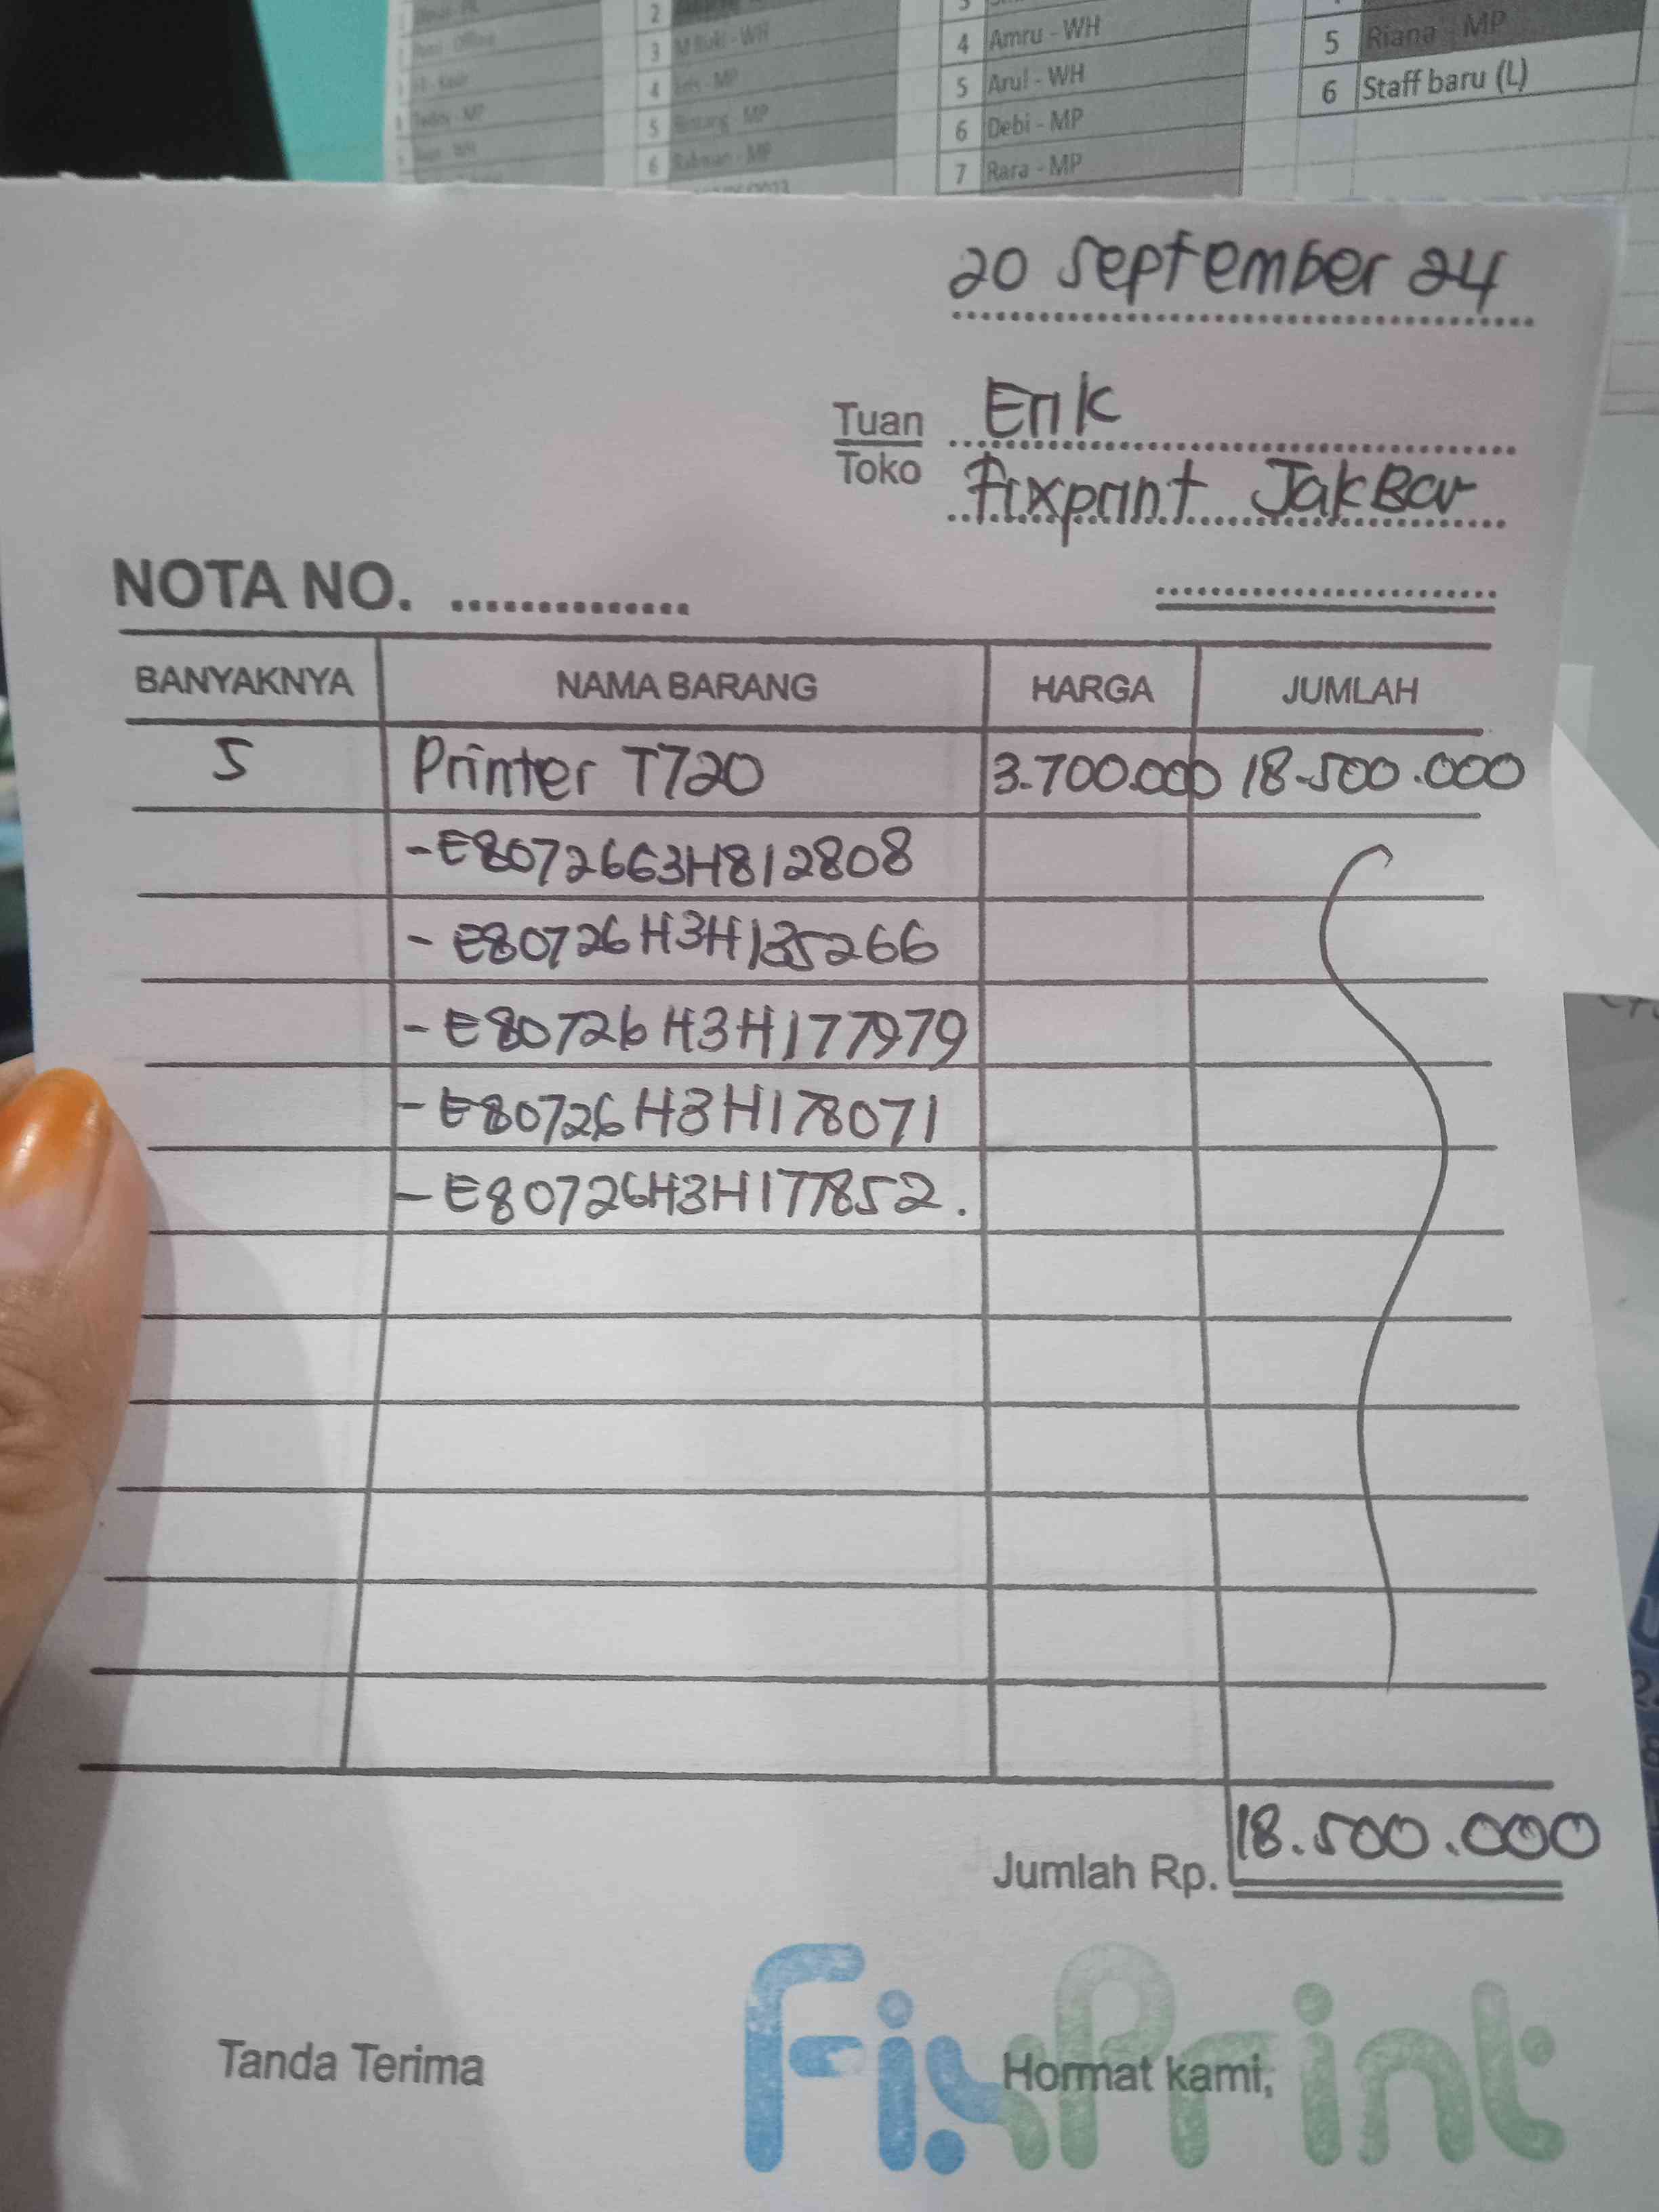 2
3 M Rizki - WH
4
5 Bintang - MP
6 Rahman - MP
4 Amru - WH
5 Arul - WH
6 Debi - MP
7 Rara - MP
5 Riana - MP
6 Staff baru (L)
20 September 24
Tuan Erik
Toko Fixprint JakBar
NOTA NO.
BANYAKNYA NAMA BARANG HARGA JUMLAH
5 Printer T720 3.700.000 18.500.000
- E8072663H812808
- E80726H3H135266
- E80726H3H177979
- E80726H3H178071
- E80726H3H177852.
Jumlah Rp. 18.500.000
Tanda Terima Hormat kami,
FixPrint